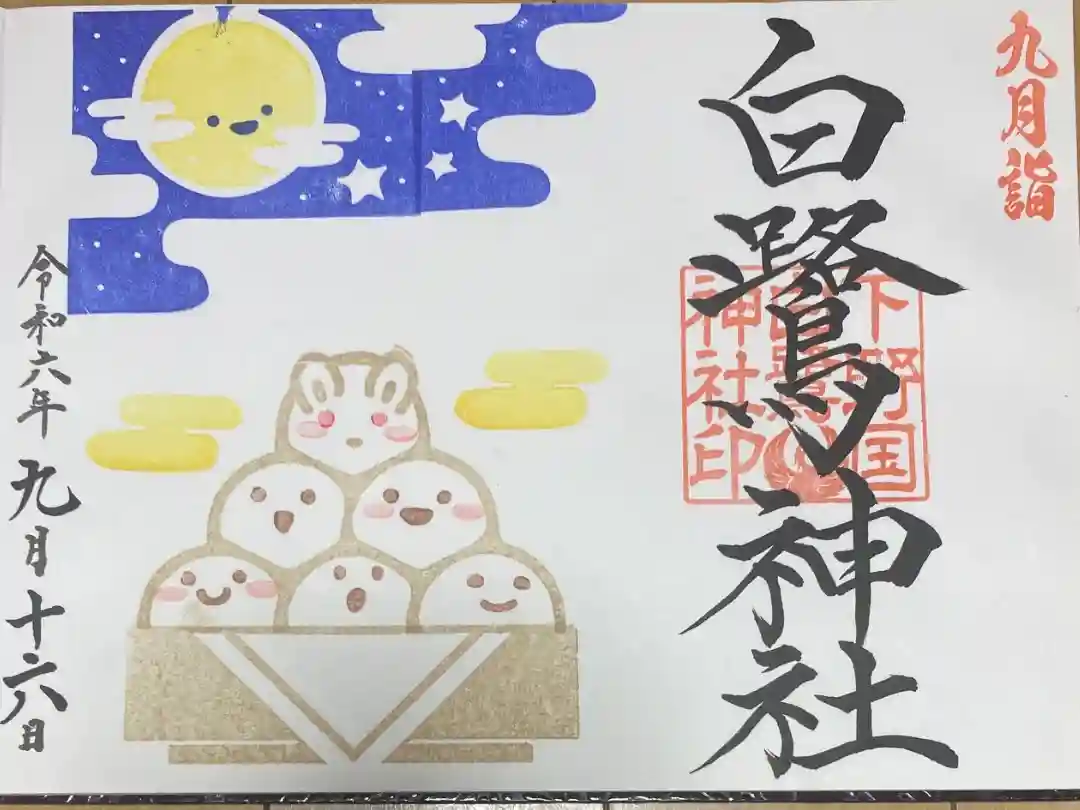 九月詣
白鷺神社
下野国
白鷺
神社印
令和六年 九月十六日